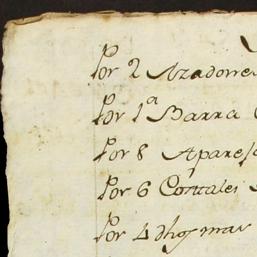 Por 2 Azadones
Por 1ª Barra
Por 8 Aparejo
Por 6 Costales
Por 4 dhos mas